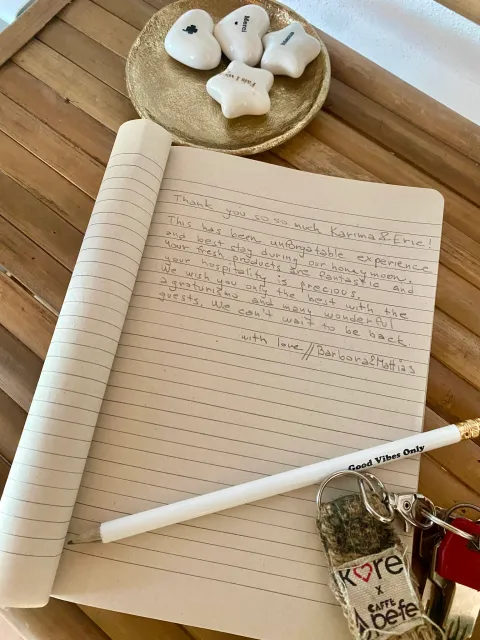 Merci
Thank you so so much Karima & Eric!
This has been unforgatable experience
and best stay during our honeymoon.
Your fresh products are fantastic and
your hospitality is precious.
We wish you only the best with the
agraturismo and many wonderful
guests. We can't wait to be back.
with love // Barbora & Mattias
Good Vibes Only
KORE
x
CAFFÈ